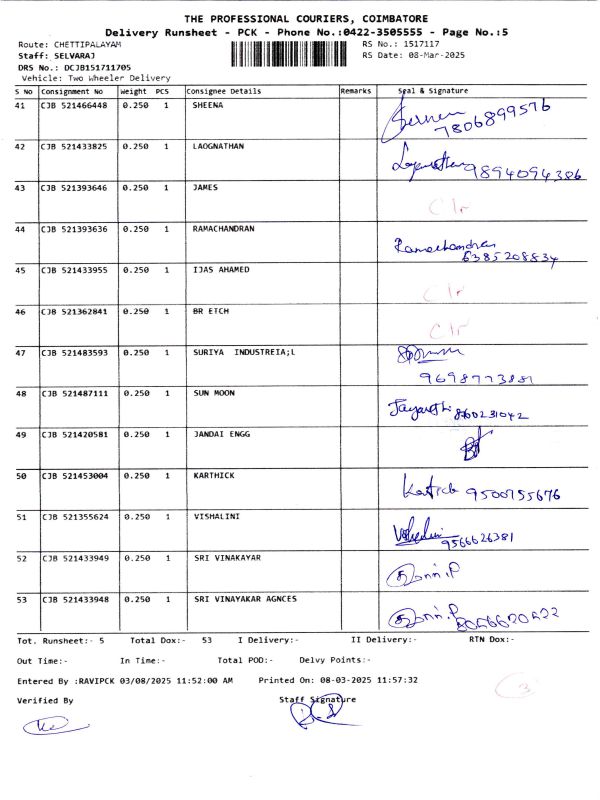 THE PROFESSIONAL COURIERS, COIMBATORE
Delivery Runsheet - PCK - Phone No.:0422-3505555 - Page No.:5
Route: CHETTIPALAYAM RS No.: 1517117
Staff: SELVARAJ RS Date: 08-Mar-2025
DRS No.: DCJB151711705
Vehicle: Two Wheeler Delivery
S No Consignment No Weight PCS Consignee Details Remarks Seal & Signature
41 CJB 521466448 0.250 1 SHEENA
7806899576
42 CJB 521433825 0.250 1 LAOGNATHAN
9894094386
43 CJB 521393646 0.250 1 JAMES
Clr
44 CJB 521393636 0.250 1 RAMACHANDRAN
Ramachandran
6385208834
45 CJB 521433955 0.250 1 IJAS AHAMED
Clr
46 CJB 521362841 0.250 1 BR ETCH
Clr
47 CJB 521483593 0.250 1 SURIYA INDUSTREIA;L
9698773881
48 CJB 521487111 0.250 1 SUN MOON
49 CJB 521420581 0.250 1 JANDAI ENGG
50 CJB 521453004 0.250 1 KARTHICK
9500755676
51 CJB 521355624 0.250 1 VISHALINI
9566626381
52 CJB 521433949 0.250 1 SRI VINAKAYAR
53 CJB 521433948 0.250 1 SRI VINAYAKAR AGNCES
Tot. Runsheet:- 5 Total Dox:- 53 I Delivery:- II Delivery:- RTN Dox:-
Out Time:- In Time:- Total POD:- Delvy Points:-
Entered By :RAVIPCK 03/08/2025 11:52:00 AM Printed On: 08-03-2025 11:57:32
3
Verified By Staff Signature